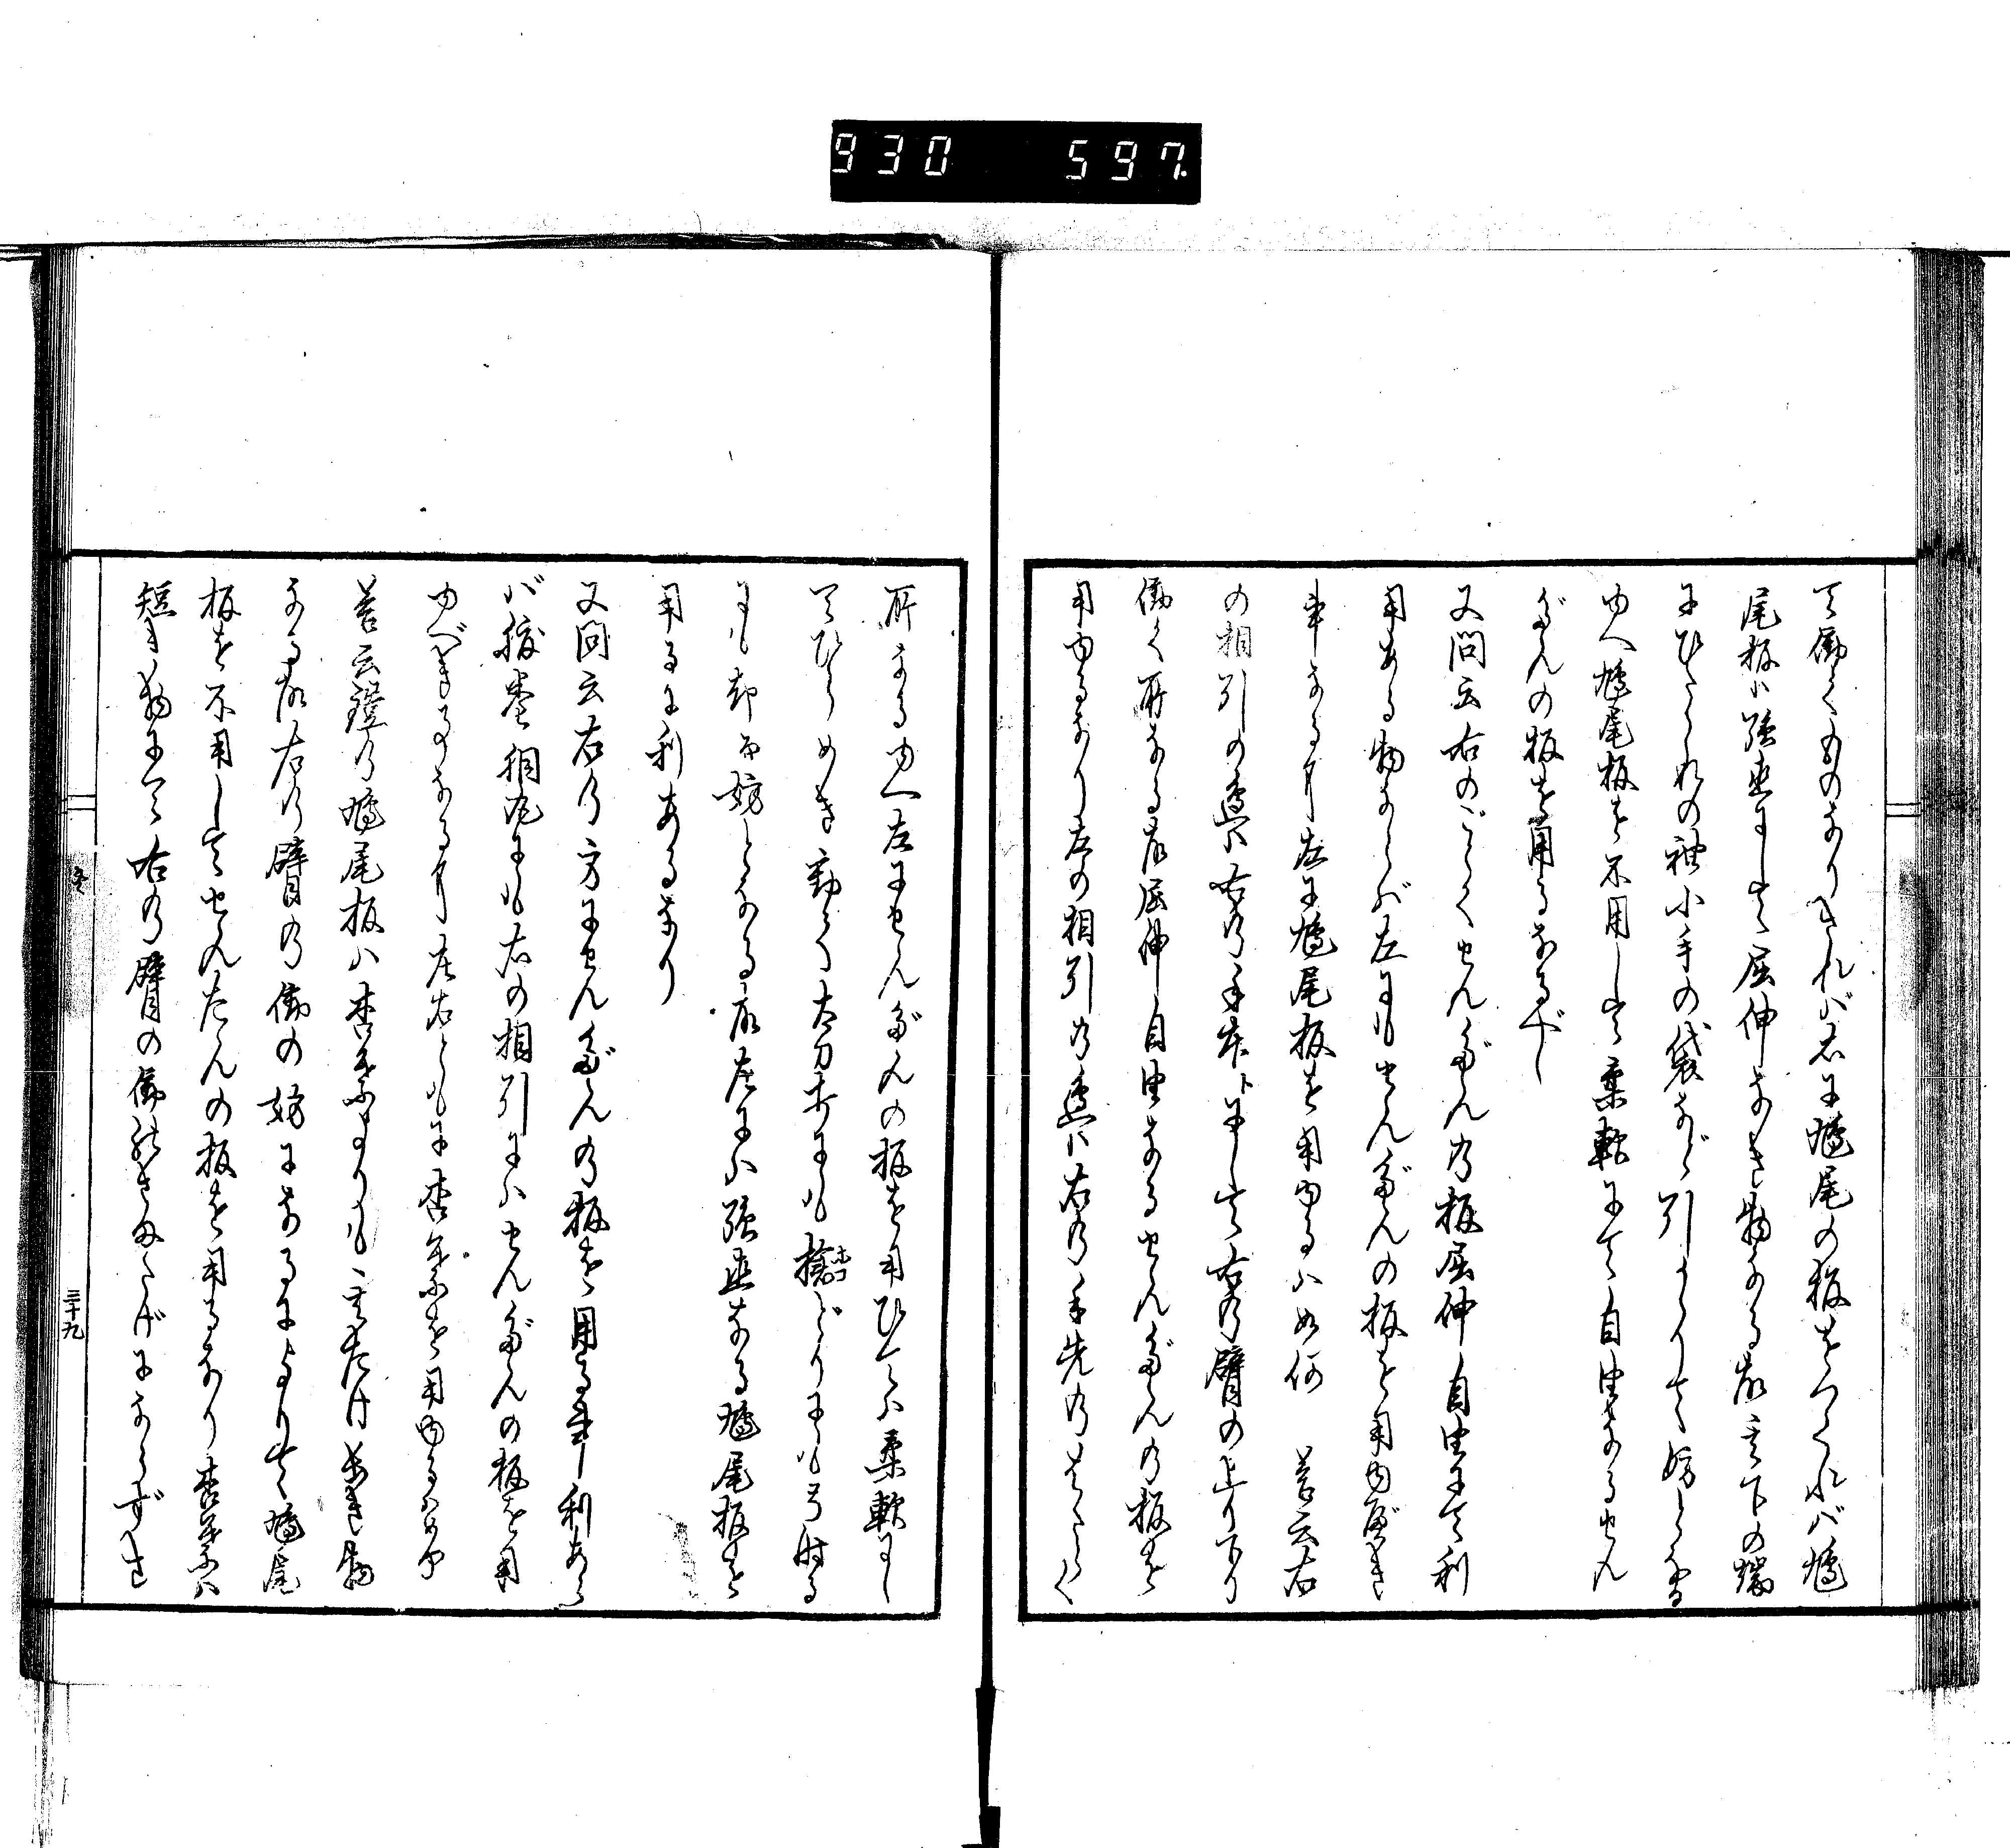 930 597.
て働くものなりされバ右に鳩尾の板をつくれバ鳩
尾板ハ強直にして屈伸なき物なる故其下の端
にひたゝれの袖小手の袋など引かゝりて妨となる
ゆへ鳩尾板を不用して柔軟にて自由なるせん
だんの板を用るなるべし
又問云右のごとくせんだんの板屈伸自由にて利
用ある物ならバ左にもせんだんの板を用ゆべき
事なるに左に鳩尾板を用ゆるハ如何 答云右
の相引の邊ハ右の手本トにして右の臂の上り下り
働く所なる故屈伸自由なるせんだんの板を
用ゆるなり左の相引の邊ハ右の手先のはたらく
所なるゆへ左にせんだんの板を用ひてハ柔軟にし
てひらめき動く太刀打にも捻どりにも弓射る
にも却而妨となる故左にハ強直なる鳩尾板を
用るに利あるなり
又問云右の方にせんだんの板を用る事利あら
バ腹巻胴丸にも右の相引にハせんだんの板を用
ゆべき事なるに左右ともに杏葉を用ゆるハいかゞ
答云鎧の鳩尾板ハ杏葉よりも其たけ長き物
なる故右の臂の働の妨になるによりて鳩尾
板を不用してせんたんの板を用るなり杏葉ハ
短き物にて右の臂の働のさまたげにならずされ
三十九